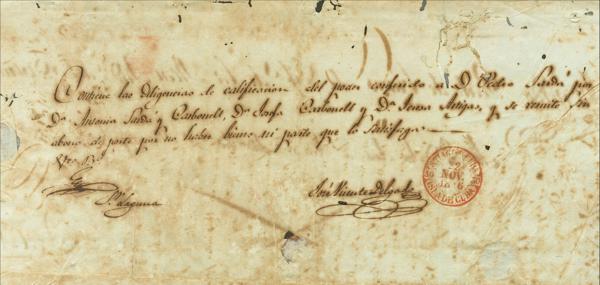 Contiene las diligencias de calificacion del poder conferido a D. Pedro Sardá por
Dn. Antonio Sardá y Carbonell, Da. Josefa Carbonell y Da. Teresa Artigas, y se remite sin
abono de porte por no haber bienes ni parte que lo satisfaga
Vto. Bo.
Laguna
José Vicente Delgado
NOV